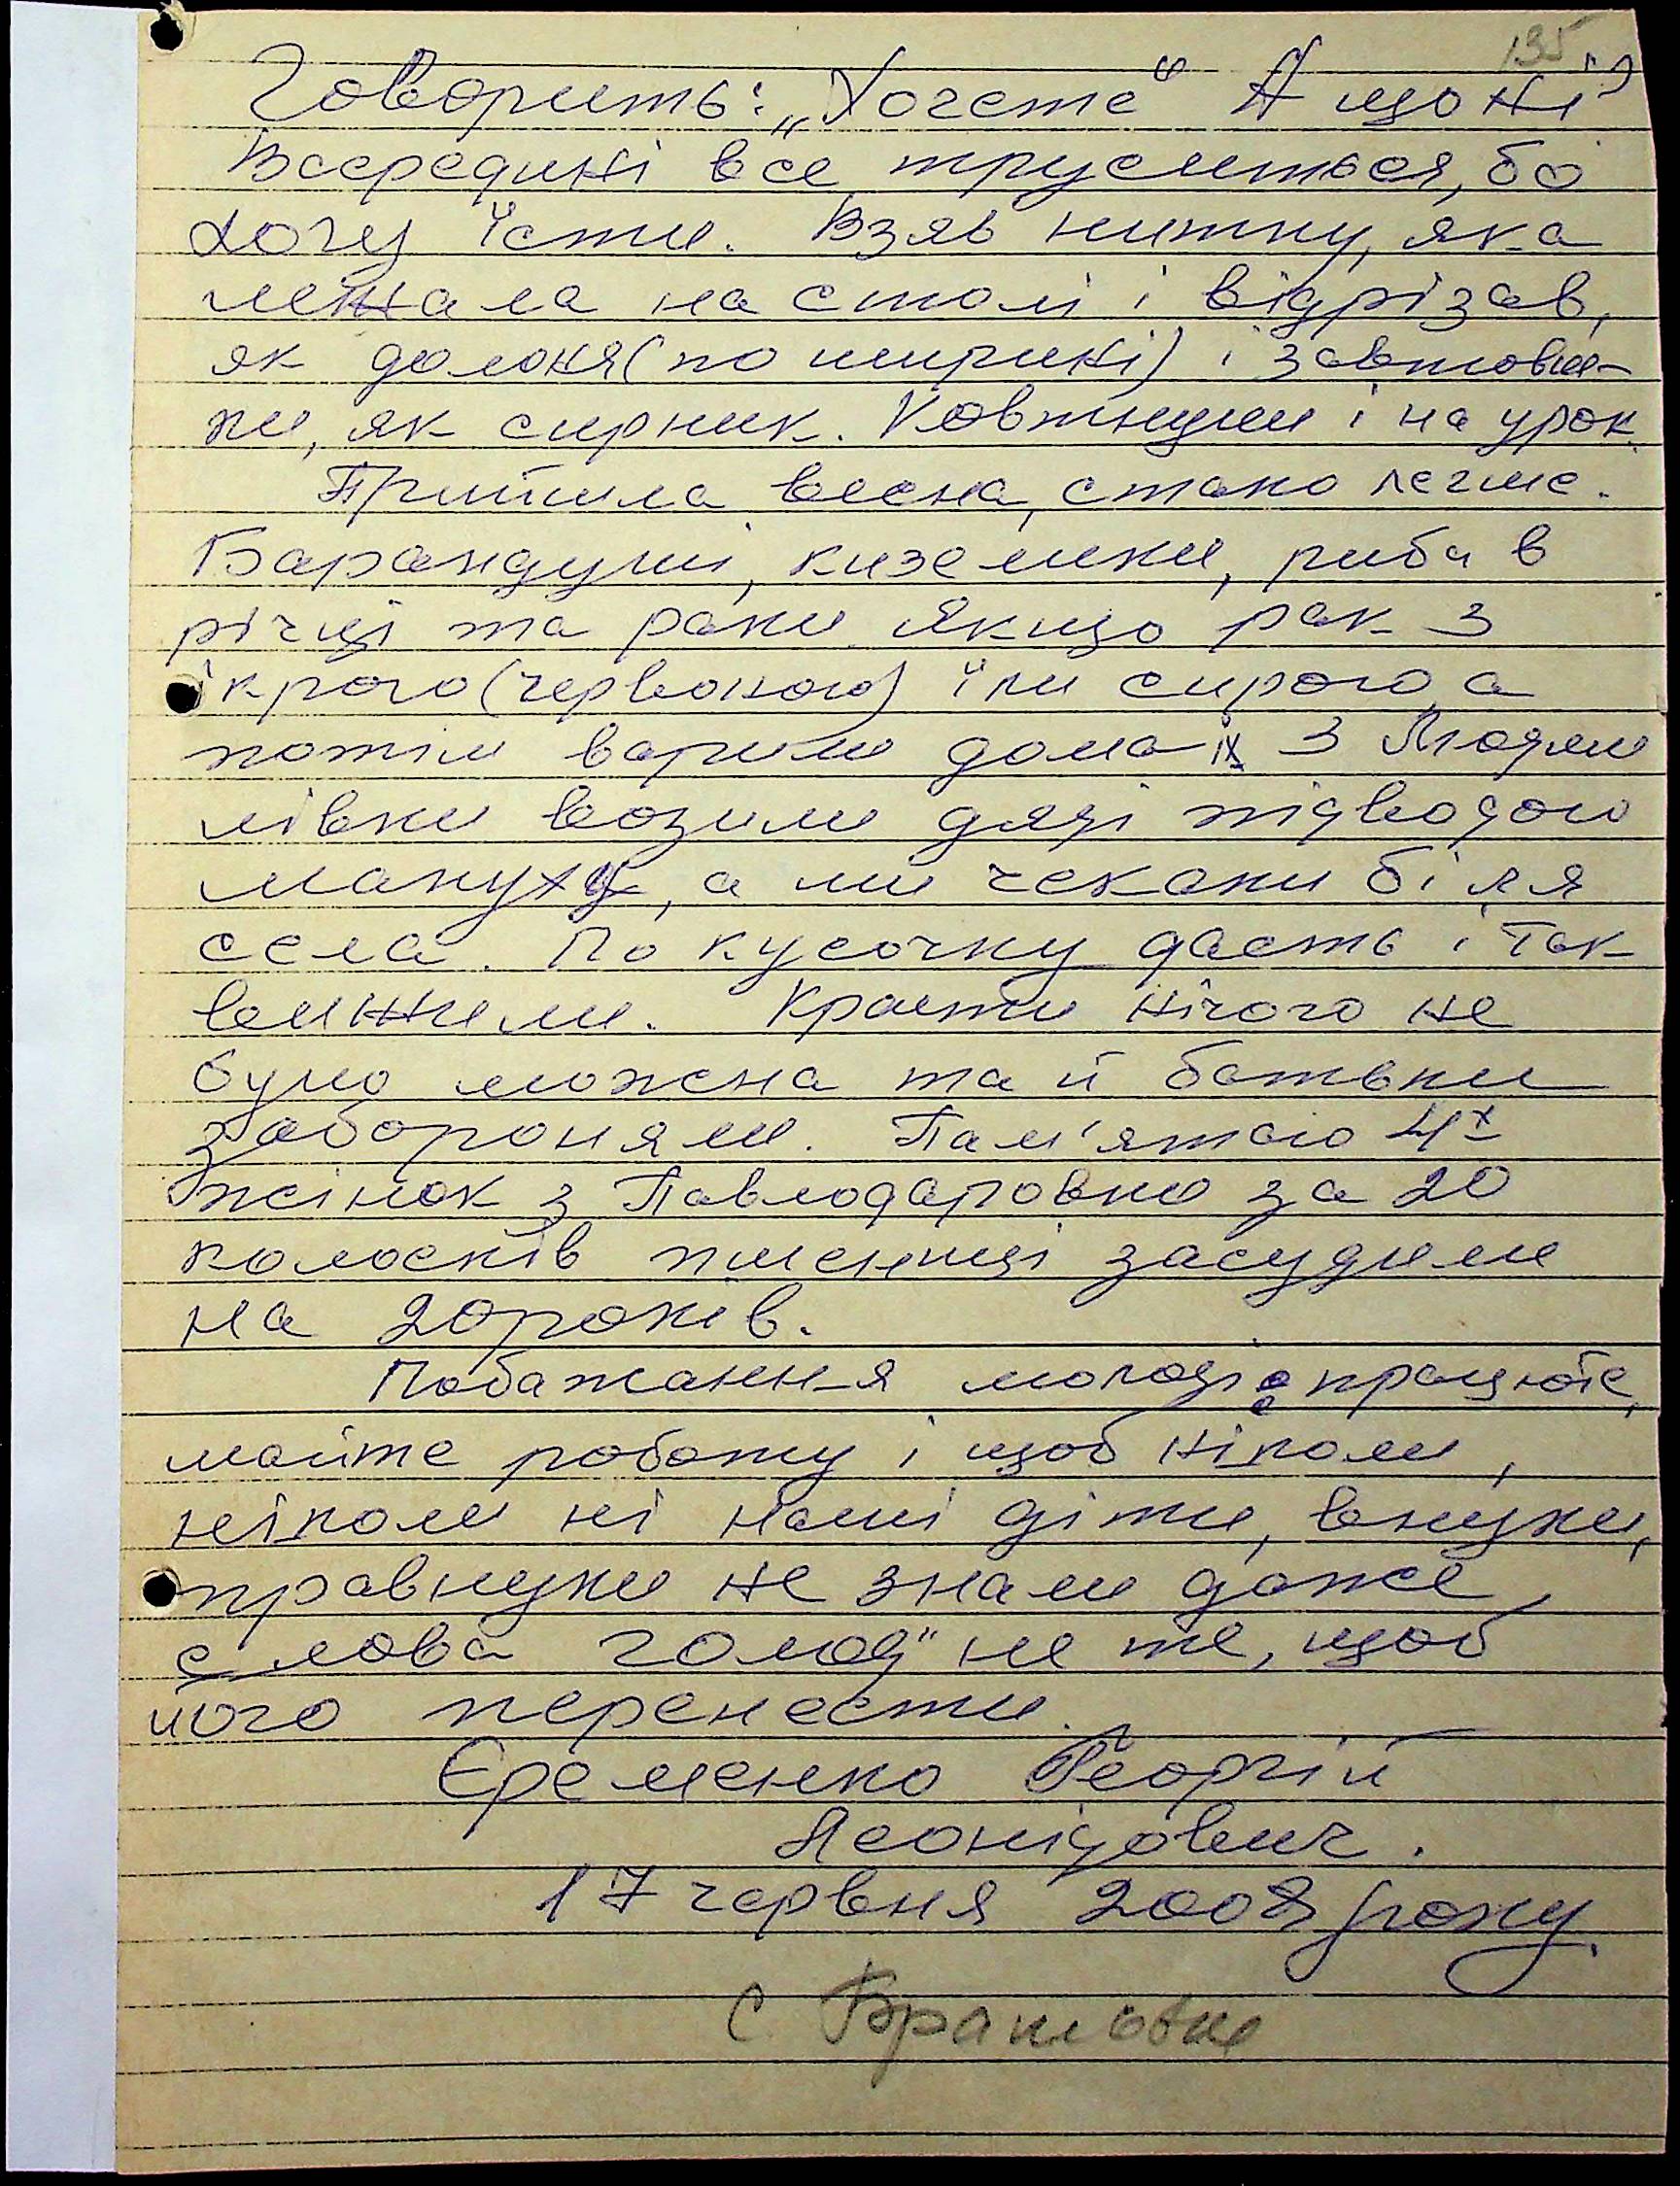 135
Говорить: „Хочете“ А що ні“?
Всередині все труситься, бо
хочу їсти. Взяв нитку, яка
лежала на столі і відрізав,
як долоня (по ширині) і завтовш-
ки, як сирник. Ковтнули і на урок.
Прийшла весна, стало легше.
Барандушi, киземики, риба в
річці та раки. Якщо рак з
ікрою (червоною) їли сирою, а
потім варили дома їх З Людми
лівки возили дяді підводою
макуху, а ми чекали біля
села. По кусочку дасть і так
вижили. Красти нічого не
було можна та й батьки
забороняли. Пам'ятаю 4х
жінок з Павлодаровки за 20
колосків пшениці засудили
на 20 років.
Побажання молоді працюйте,
майте роботу і щоб ніколи,
ніколи ні наші діти, внуки,
правнуки не знали даже
слова голод" не те, щоб
його перенести.
Єременко Георгій
Леонідович.
17 червня 2008 року.
с